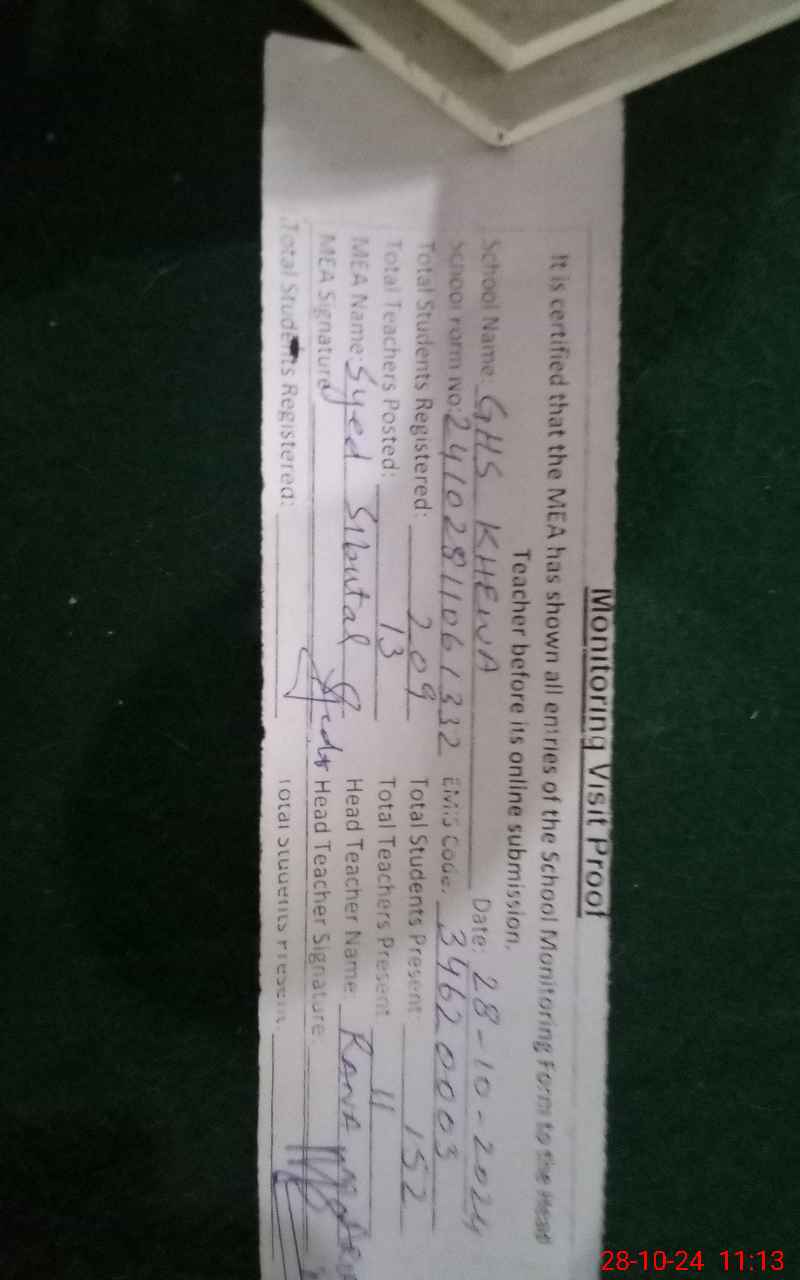 Monitoring Visit Proof
It is certified that the MEA has shown all entries of the School Monitoring Form to the Head
Teacher before its online submission.
School Name: GHS KHEWA Date: 28-10-2024
School Form No: 24102811061332 EMIS Code: 34620003
Total Students Registered: 209 Total Students Present: 152
Total Teachers Posted: 13 Total Teachers Present: 11
MEA Name: Syed Head Teacher Name: Rana
MEA Signature Head Teacher Signature:
Total Students Registered: Total Students Present:
28-10-24 11:13